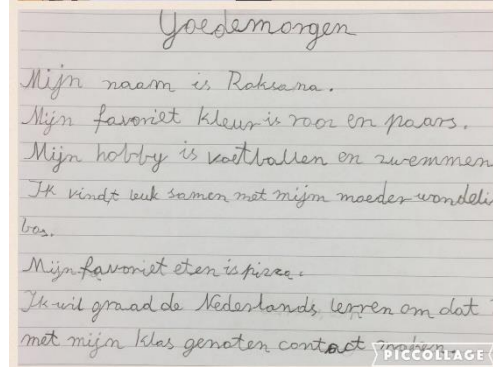 Goedemorgen
Mijn naam is Roksana.
Mijn favoriet kleur is rooz en paars.
Mijn hobby is voetballen en zwemmen
Ik vindt leuk samen met mijm moeder wandeli
bos.
Mijn favoriet eten is pizza.
Ik wil graad de Nederlands lerren om dat
met mijn klas genoten contact maken.
PICCOLLAGE